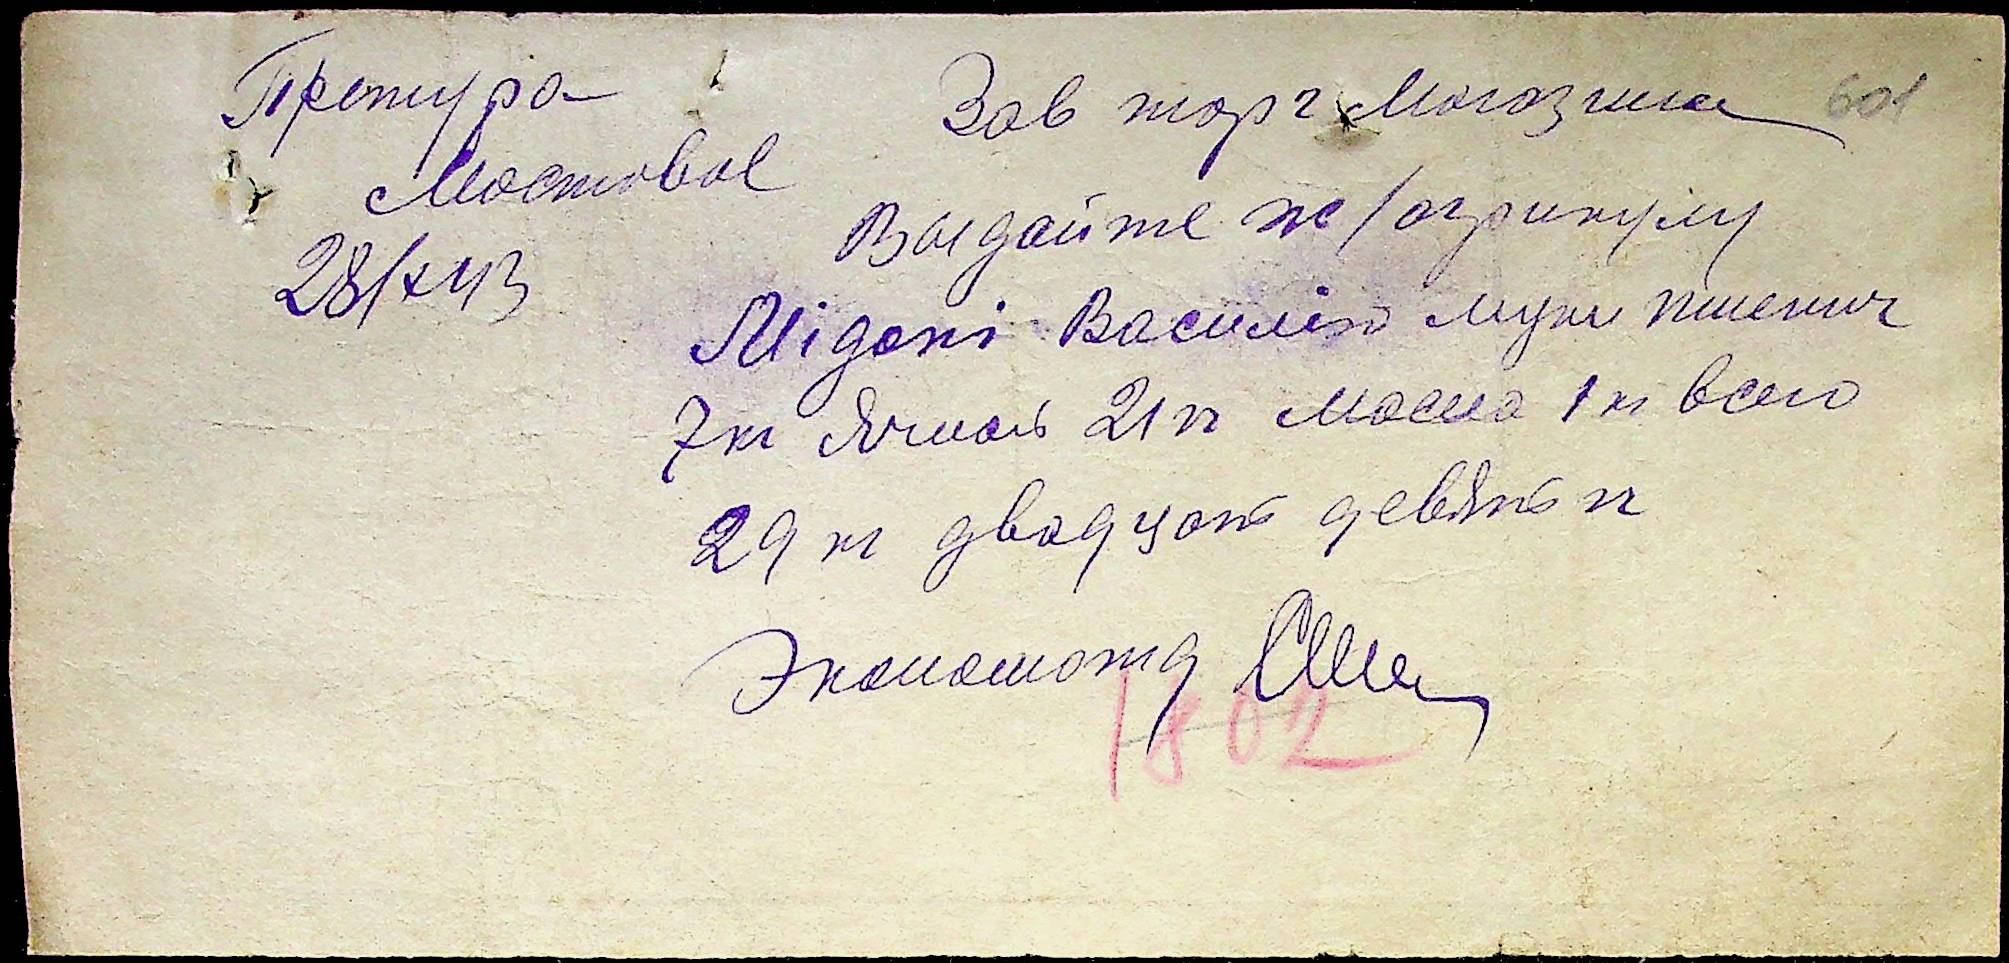 Претура
Мостовое
28/X 43
Зав торг Магазина 601
Выдайте ж/агриколу
Мідоні Василію муки пшенич
7 кг Ячмень 21 кг масла 1 кг всего
29 кг двадцать девять кг
Экономотд
1802